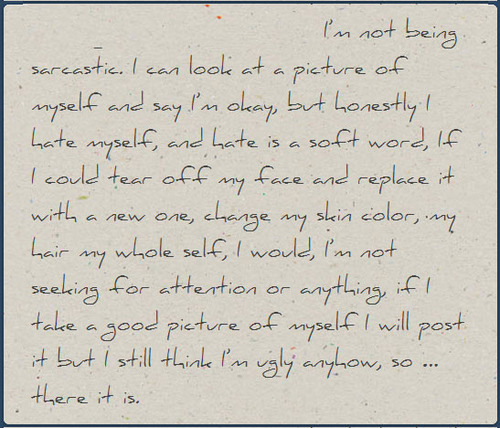 I'm not being
sarcastic. I can look at a picture of
myself and say I'm okay, but honestly I
hate myself, and hate is a soft word, If
I could tear off my face and replace it
with a new one, change my skin color, my
hair my whole self, I would, I'm not
seeking for attention or anything, if I
take a good picture of myself I will post
it but I still think I'm ugly anyhow, so ...
there it is.